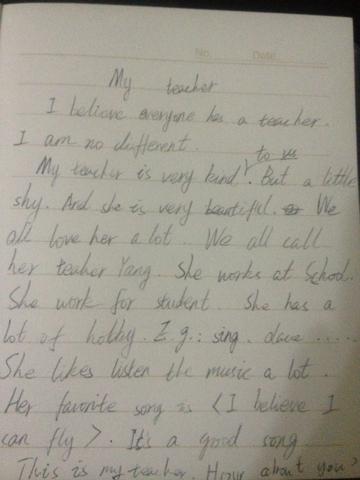 No. Date
My teacher
I believe everyone has a teacher.
I am no different.
to us
My teacher is very kind. But a little
shy. And she is very beautiful. We
all love her a lot. We all call
her teacher Yang. She works at School.
She work for student. She has a
lot of hobby. E.g.: sing. dance .....
She likes listen the music a lot.
Her favorite song is <I believe I
can fly>. It's a good song.
This is my teacher. How about you?